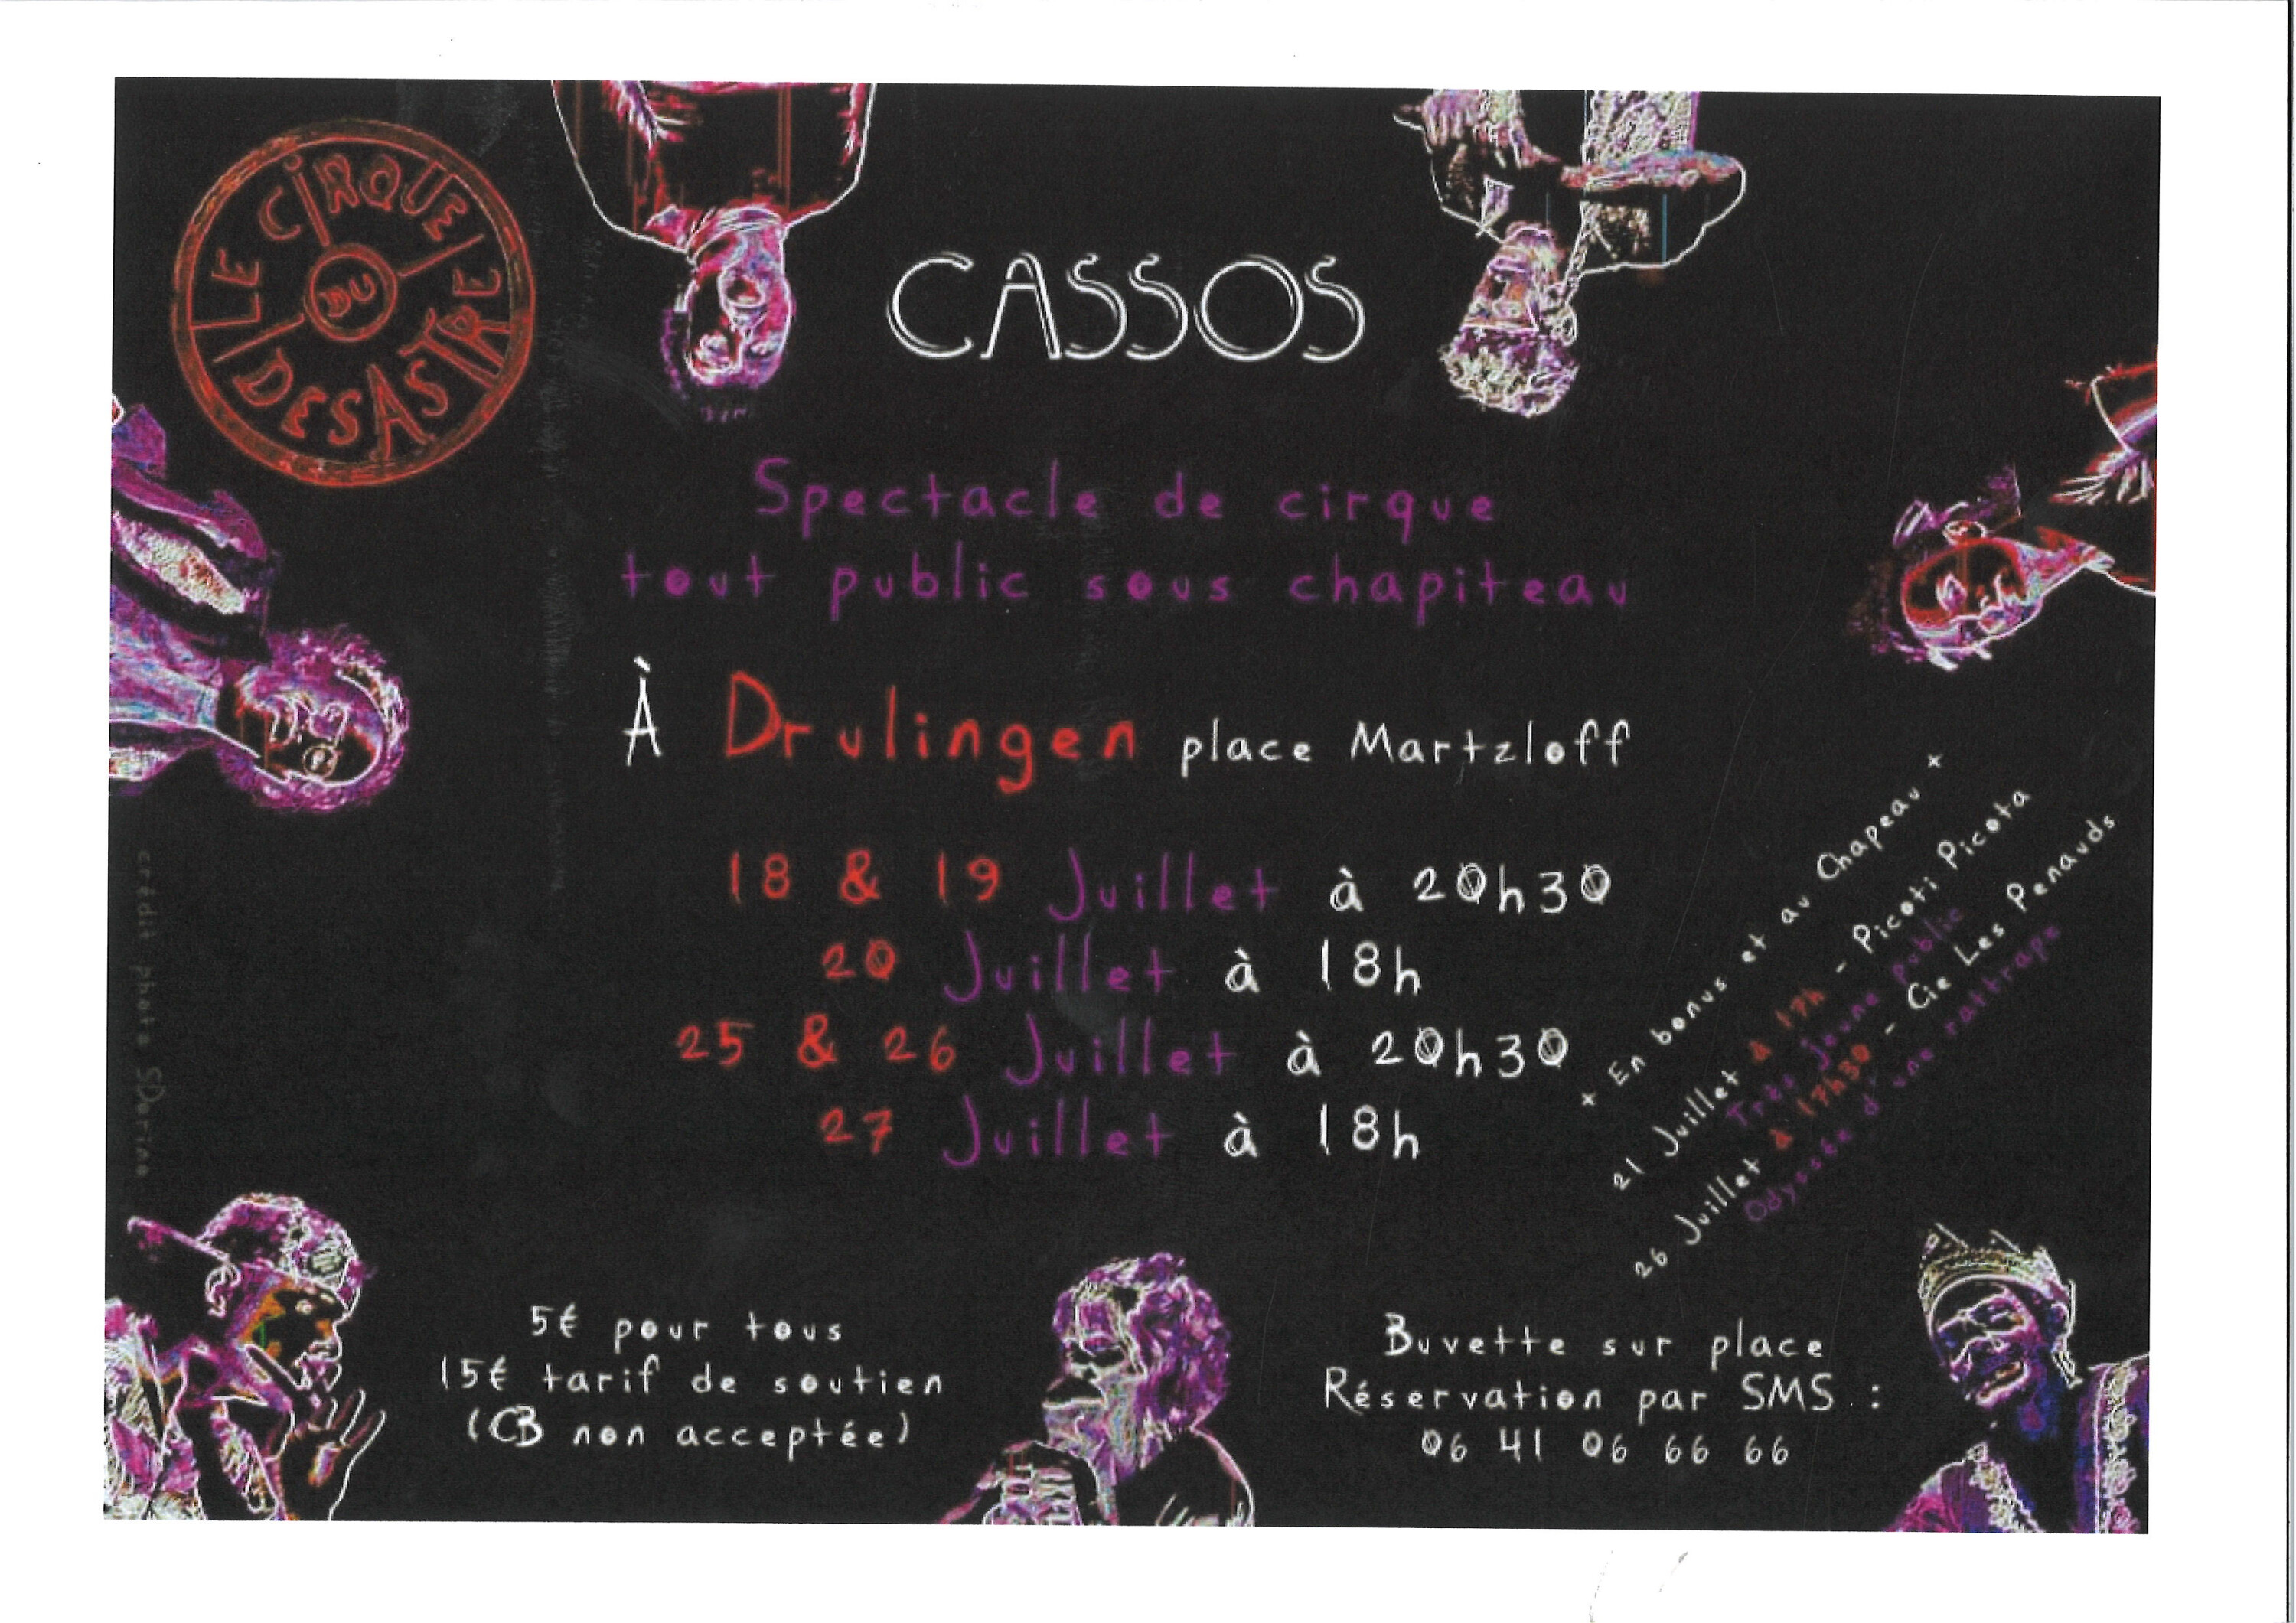 LE CIRQUE DU DESASTRE
CASSOS
Spectacle de cirque
tout public sous chapiteau
À Drulingen place Martzloff
18 & 19 Juillet à 20h30
20 Juillet à 18h
25 & 26 Juillet à 20h30
27 Juillet à 18h
x En bonus et au Chapeau x
21 Juillet à 17h - Picoti Picota
Très jeune public
26 Juillet à 17h30 - Cie Les Penauds
Odyssée d'une rattrape
5€ pour tous
15€ tarif de soutien
(CB non acceptée)
Buvette sur place
Réservation par SMS :
06 41 06 66 66
crédit photo SDorino